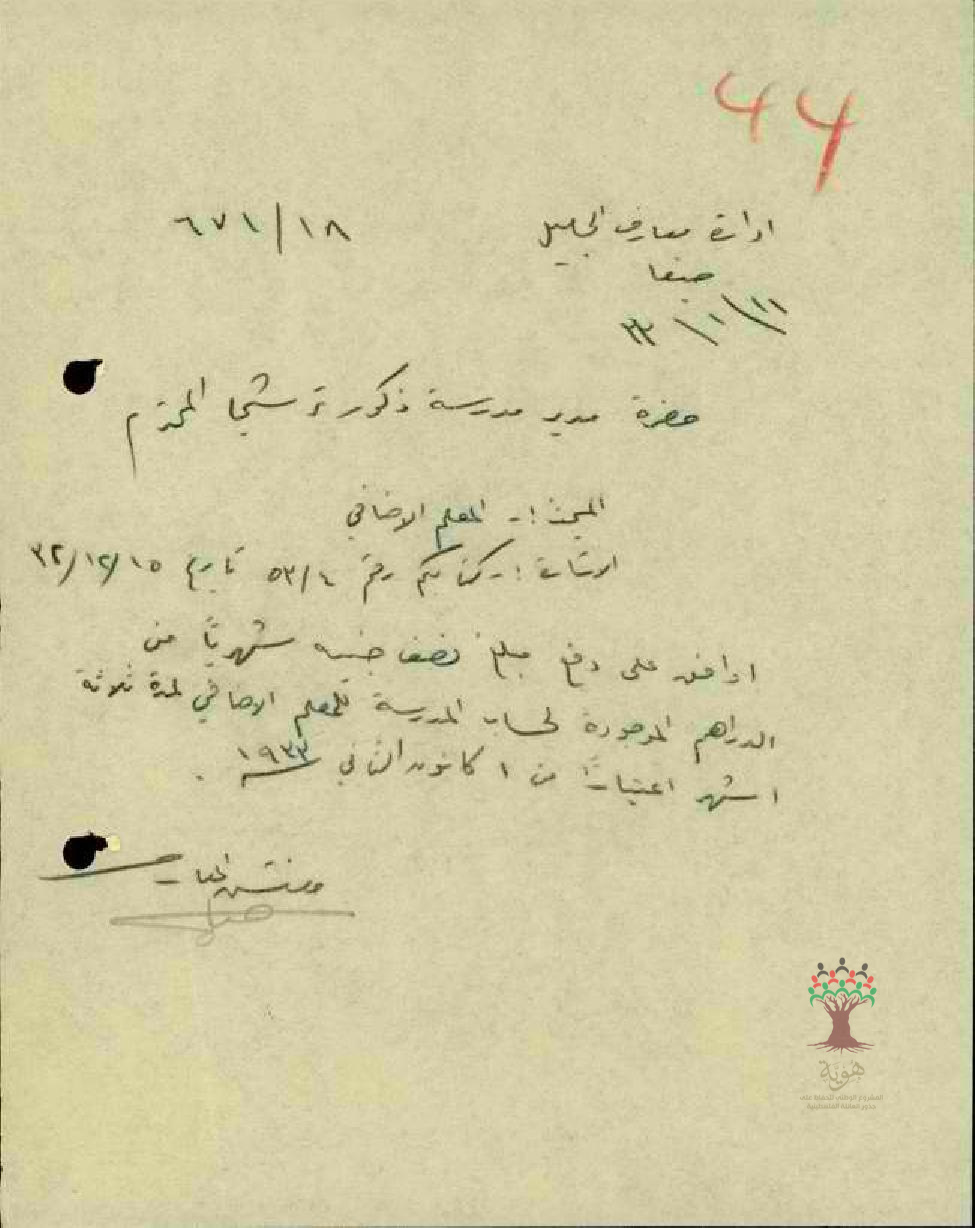 44
ادارة معارف الجليل
٦٧١/١٨
حيفا
٣٣/١/١١
حضرة مدير مدرسة ذكور ترشيحا المحترم
المبحث :- المعلم الاضافي
الاشارة :- كتابكم رقم ٥٣/٤ تاريخ ٣٢/١٢/١٥
اوافق على دفع مبلغ نصف جنيه شهرياً من
الدراهم الموجودة لحساب المدرسة للمعلم الاضافي لمدة ثلاثة
اشهر اعتباراً من ١ كانون الثاني سنة ١٩٣٣ .
مفتش المعارف
هوية
المشروع الوطني للحفاظ على
جذور العائلة الفلسطينية